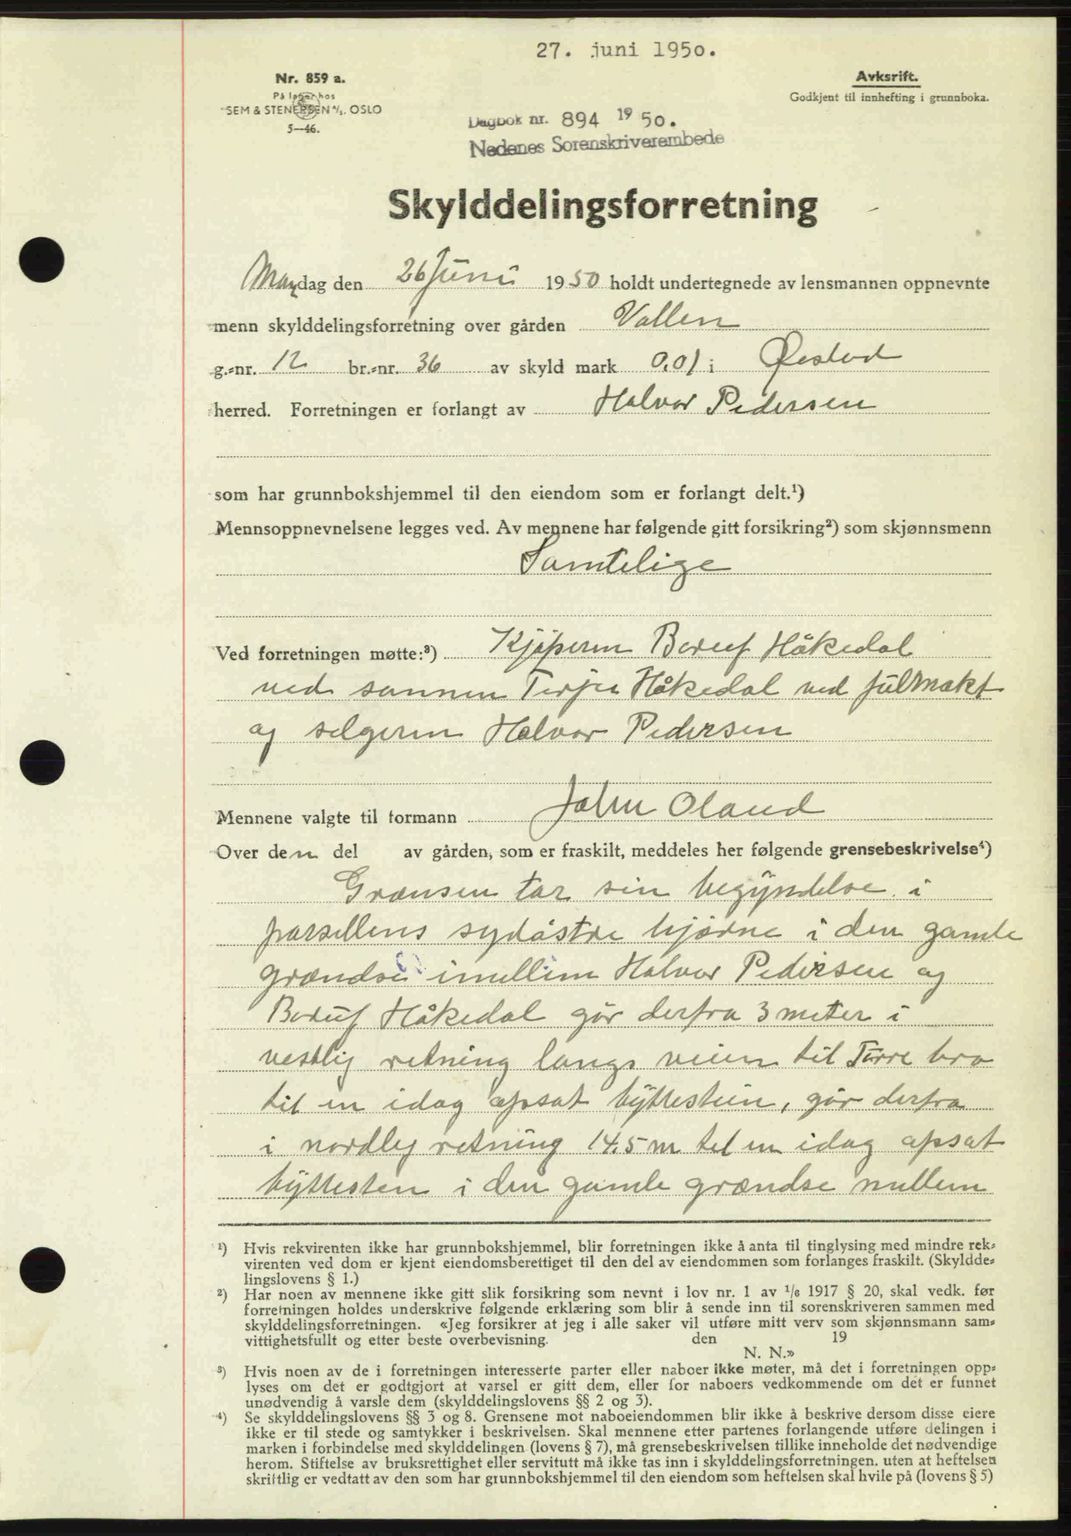 27. juni 1950.
Nr. 859 a.
På lager hos
SEM & STENERSEN A/S. OSLO
5—46.
Avksrift.
Godkjent til innhefting i grunnboka.
Dagbok nr. 894 19 50.
Nedenes Sorenskriverembede
Skylddelingsforretning
Mandag den 26 Juni 1950 holdt undertegnede av lensmannen oppnevnte
menn skylddelingsforretning over gården Vallen
g.=nr. 12 br.=nr. 36 av skyld mark 0,01 i Øiestad
herred. Forretningen er forlangt av Halvor Pedersen
som har grunnbokshjemmel til den eiendom som er forlangt delt.¹)
Mennsoppnevnelsene legges ved. Av mennene har følgende gitt forsikring²) som skjønnsmenn
Samtelige
Ved forretningen møtte:³) Kjøperen Håkedal
ved sønnen Terje Håkedal ved fulmakt
og selgeren Halvor Pedersen
Mennene valgte til formann John Oland
Over den del av gården, som er fraskilt, meddeles her følgende grensebeskrivelse⁴)
Grænsen tar sin begyndelse i
parsellens sydøstre hjørne i den gamle
grændse imellem Halvor Pedersen og
Håkedal går derfra 3 meter i
vestlig retning langs veien til bro
til en idag opsat byttestein, går derfra
i nordlig retning 14.5 m til en idag opsat
byttesten i den gamle grændse mellem
¹) Hvis rekvirenten ikke har grunnbokshjemmel, blir forretningen ikke å anta til tinglysing med mindre rek=
virenten ved dom er kjent eiendomsberettiget til den del av eiendommen som forlanges fraskilt. (Skyldde=
lingslovens § 1.)
²) Har noen av mennene ikke gitt slik forsikring som nevnt i lov nr. 1 av 1/6 1917 § 20, skal vedk. før
forretningen holdes underskrive følgende erklæring som blir å sende inn til sorenskriveren sammen med
skylddelingsforretningen. «Jeg forsikrer at jeg i alle saker vil utføre mitt verv som skjønnsmann sam=
vittighetsfullt og etter beste overbevisning. den 19
N. N.»
³) Hvis noen av de i forretningen interesserte parter eller naboer ikke møter, må det i forretningen opp=
lyses om det er godtgjort at varsel er gitt dem, eller for naboers vedkommende om det er funnet
unødvendig å varsle dem (skylddelingslovens §§ 2 og 3).
⁴) Se skylddelingslovens §§ 3 og 8. Grensene mot naboeiendommen blir ikke å beskrive dersom disse eiere
ikke er til stede og samtykker i beskrivelsen. Skal mennene etter partenes forlangende utføre delingen i
marken i forbindelse med skylddelingen (lovens § 7), må grensebeskrivelsen tillike inneholde det nødvendige
herom. Stiftelse av bruksrettighet eller servitutt må ikke tas inn i skylddelingsforretningen. uten at heftelsen
skriftlig er vedtatt av den som har grunnbokshjemmel til den eiendom som heftelsen skal hvile på (lovens § 5)